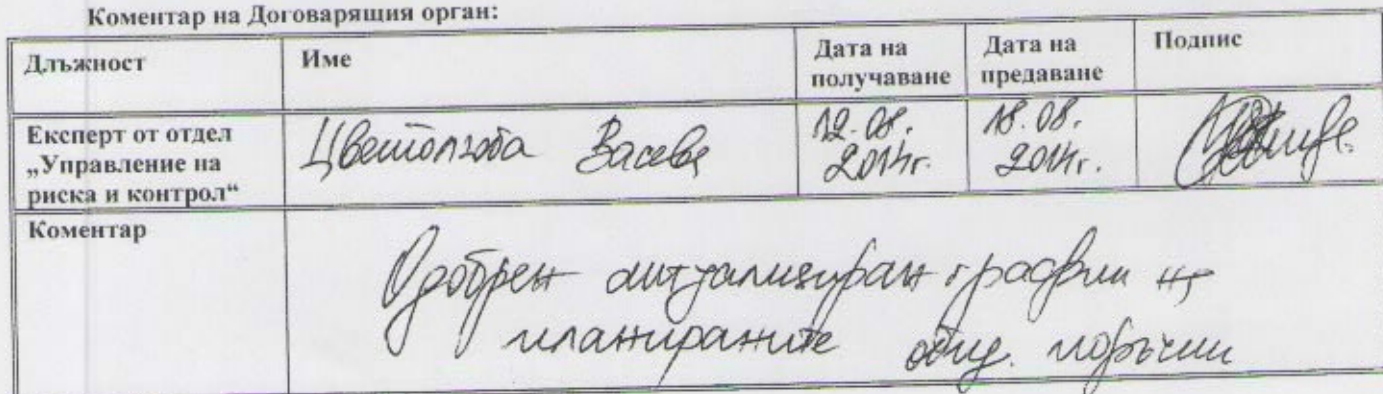 Коментар на Договарящия орган:
Длъжност Име Дата на получаване Дата на предаване Подпис
Експерт от отдел „Управление на риска и контрол“ Цветолюба Васева 12.08. 2014г. 18.08. 2014г.
Коментар
Одобрен актуализиран график на
планираните общ. поръчки